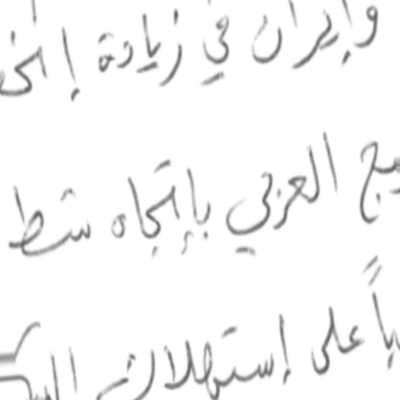 وإيران في زيادة إنخـ
ـيج العربي بإتجاه شط
ـياً على إستهلاك الـ